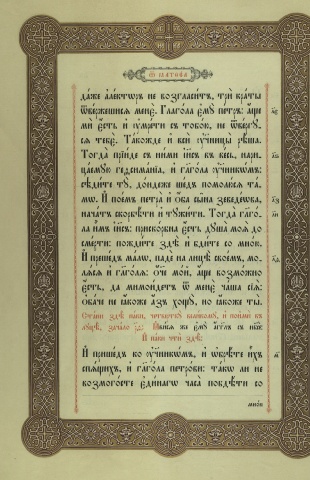 Ѿ МАТѲЕА
да́же але́ктѡръ не возгласи́тъ, три́ кра́ты
ѿве́ржешисѧ менє̀. Глаго́ла є҆мꙋ̀ пе́тръ: а҆́ще
ми́ є҆́сть и҆ ᲂу҆мре́ти съ тобо́ю, не ѿве́ргꙋ-
сѧ тебє̀. Та́кожде и҆ всѝ ᲂу҆чн҃цы̀ рѣ́ша.
Тогда̀ прїи́де съ ни́ми і҆и҃съ въ ве́сь, нари-
ца́емꙋю геѳсима́нїа, и҆ глаго́ла ᲂу҆чн҃кѡ́мъ:
сѣди́те тꙋ̀, до́ндеже ше́дъ помолю́сѧ та́-
мѡ. И҆ пое́мъ петра̀ и҆ ѻ҆́ба сы̑на зеведе́ѡва,
нача́тъ скорбѣ́ти и҆ тꙋжи́ти. Тогда̀ глаго́-
ла и҆̀мъ і҆и҃съ: приско́рбна є҆́сть дꙋша̀ моѧ̀ до
сме́рти: пожди́те здѣ̀ и҆ бди́те со мно́ю.
И҆ преше́дъ ма́лѡ, падѐ на лицы̀ свое́мъ, мо-
лѧ́сѧ и҆ глаго́лѧ: ѻ҆́ч҃е мо́й, а҆́ще возмо́жно
є҆́сть, да мимои́детъ ѿ менє̀ ча́ша сїѧ̀:
ѻ҆ба́че не ꙗ҆́коже а҆́зъ хощꙋ̀, но ꙗ҆́коже ты̀.
И҆ па́ки чтѝ здѣ̀:
И҆ прише́дъ ко ᲂу҆чн҃кѡ́мъ, и҆ ѡ҆брѣ́те и҆́хъ
спѧ́щихъ, и҆ глаго́ла петро́ви: та́кѡ ли не
возмого́сте є҆ди́нагѡ часа̀ побдѣ́ти со
мно́ю